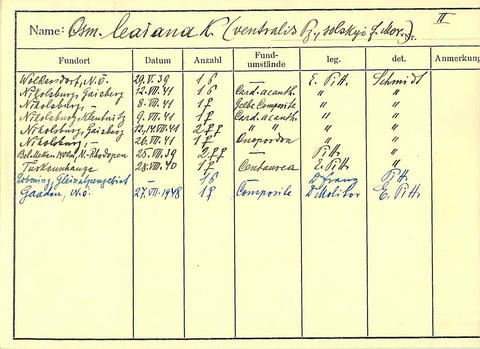 II
Name: Osm. leaiana K. (ventralis Pz., solskyi f. Mor.) Nr.
Fundort Datum Anzahl Fund- umstände leg. det. Anmerkung
Wolkersdorf, N.Ö. 29.V.39 1♂ — E. Pitt. Schmidt
Nikolsburg, Gaisberg 12.VII.41 1♀ Card. acanth. " "
Nikolsburg, — 8.VII.41 1♀ Gelbe Composite " "
Nikolsburg, Klentnitz 9.VII.41 1♀ Card. acanth. " "
Nikolsburg, Gaisberg 12./14.VII.41 2♀♀ " " " "
Nikolsburg, — 26.VII.41 1♀ Onopordon " "
Rhodopen 25.VII.39 2♀♀ — Pitt. "
Türkenschanze 28.VII.40 1♀ Centaurea E. Pitt. "
Gleinalpengebiet — 1♂ — Dr Franz Pitt.
Gaaden, N.Ö. 27.VII.1948 1♀ Composite Dr Molitor E. Pitt.